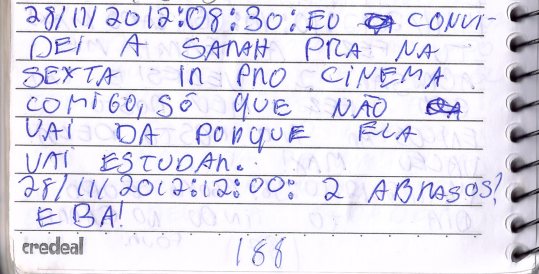 28/11/2012:08:30: EU CONVI-
DEI A SARAH PRA NA
SEXTA IR PRO CINEMA
COMIGO, SÓ QUE NÃO
VAI DA PORQUE ELA
VAI ESTUDAR.
28/11/2012:12:00: 2 ABRASOS!
EBA!
credeal
188